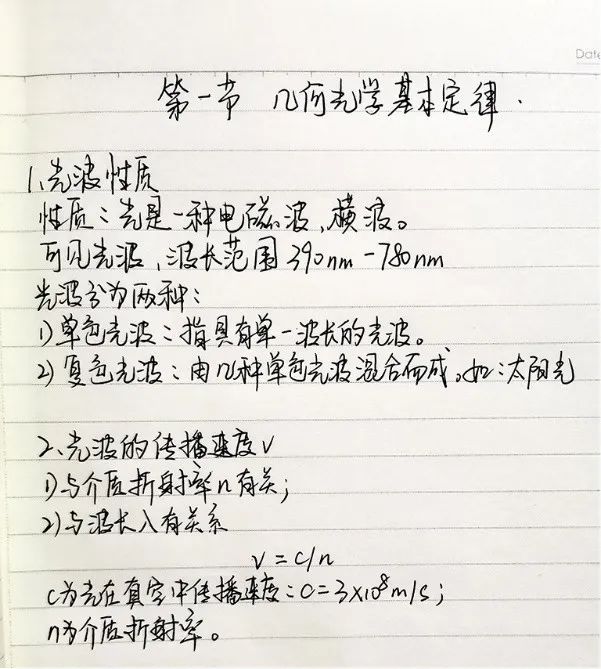 Date
第一节 几何光学基本定律.
1、光波性质
性质：光是一种电磁波，横波。
可见光波，波长范围390nm-780nm
光波分为两种：
1)单色光波：指具有单一波长的光波。
2)复色光波：由几种单色光波混合而成。如：太阳光
2、光波的传播速度v
1)与介质折射率n有关；
2)与波长λ有关系
v=c/n
c为光在真空中传播速度：c=3×10⁸m/s；
n为介质折射率。